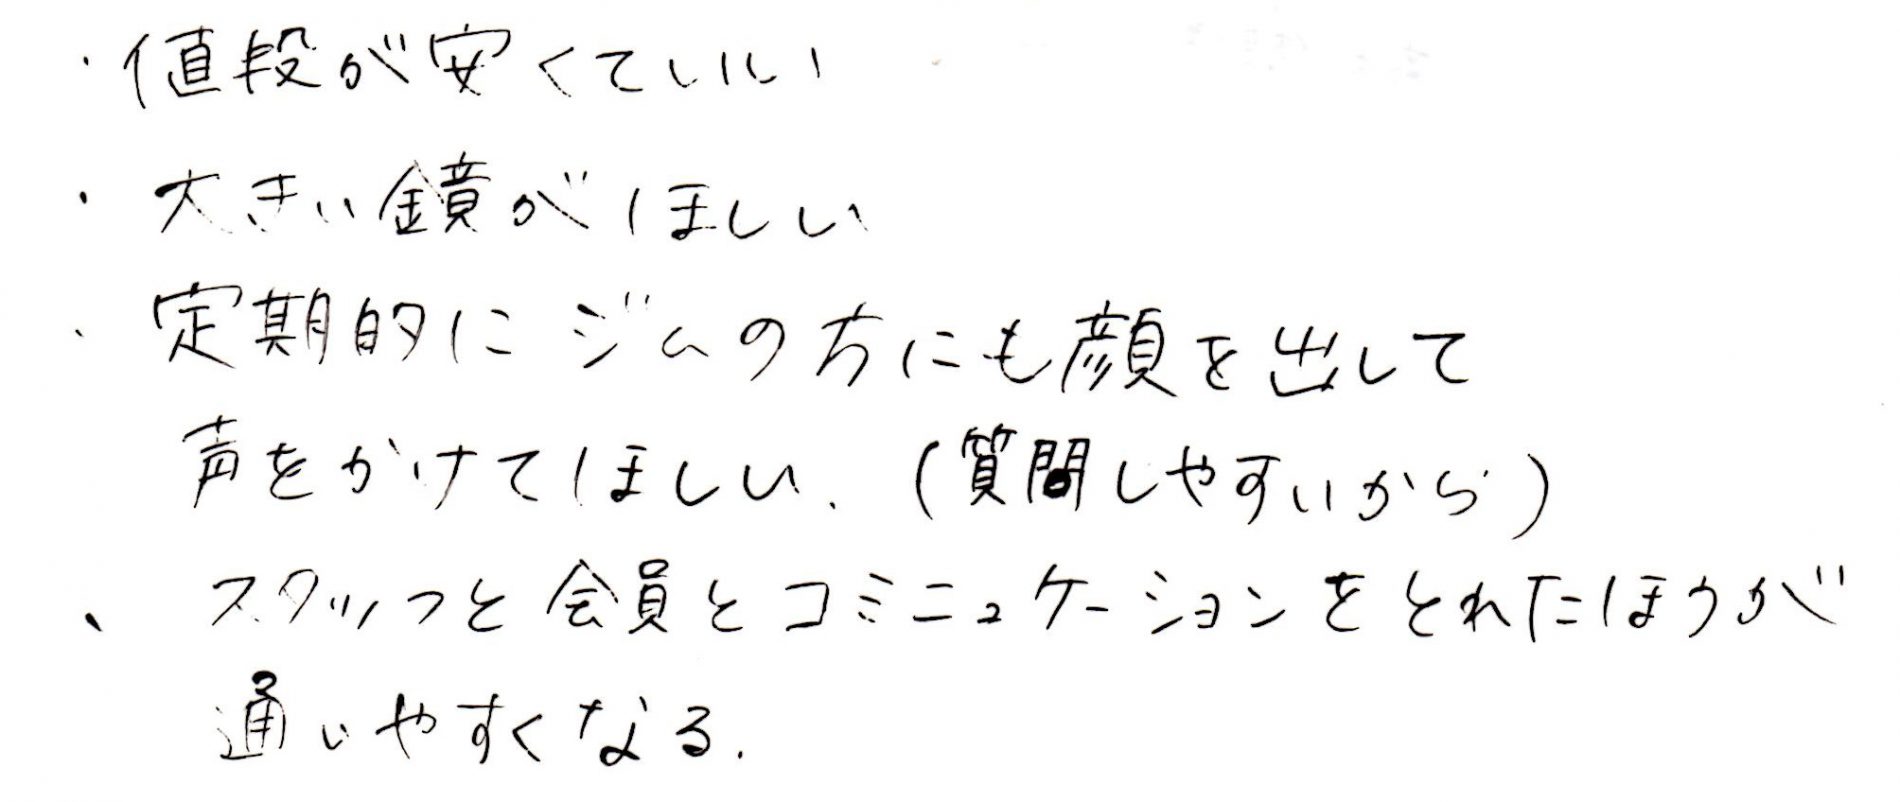 ・値段が安くていい
・大きい鏡がほしい
・定期的にジムの方にも顔を出して
声をかけてほしい.(質問しやすいから)
、スタッフと会員とコミニュケーションをとれたほうが
通いやすくなる.